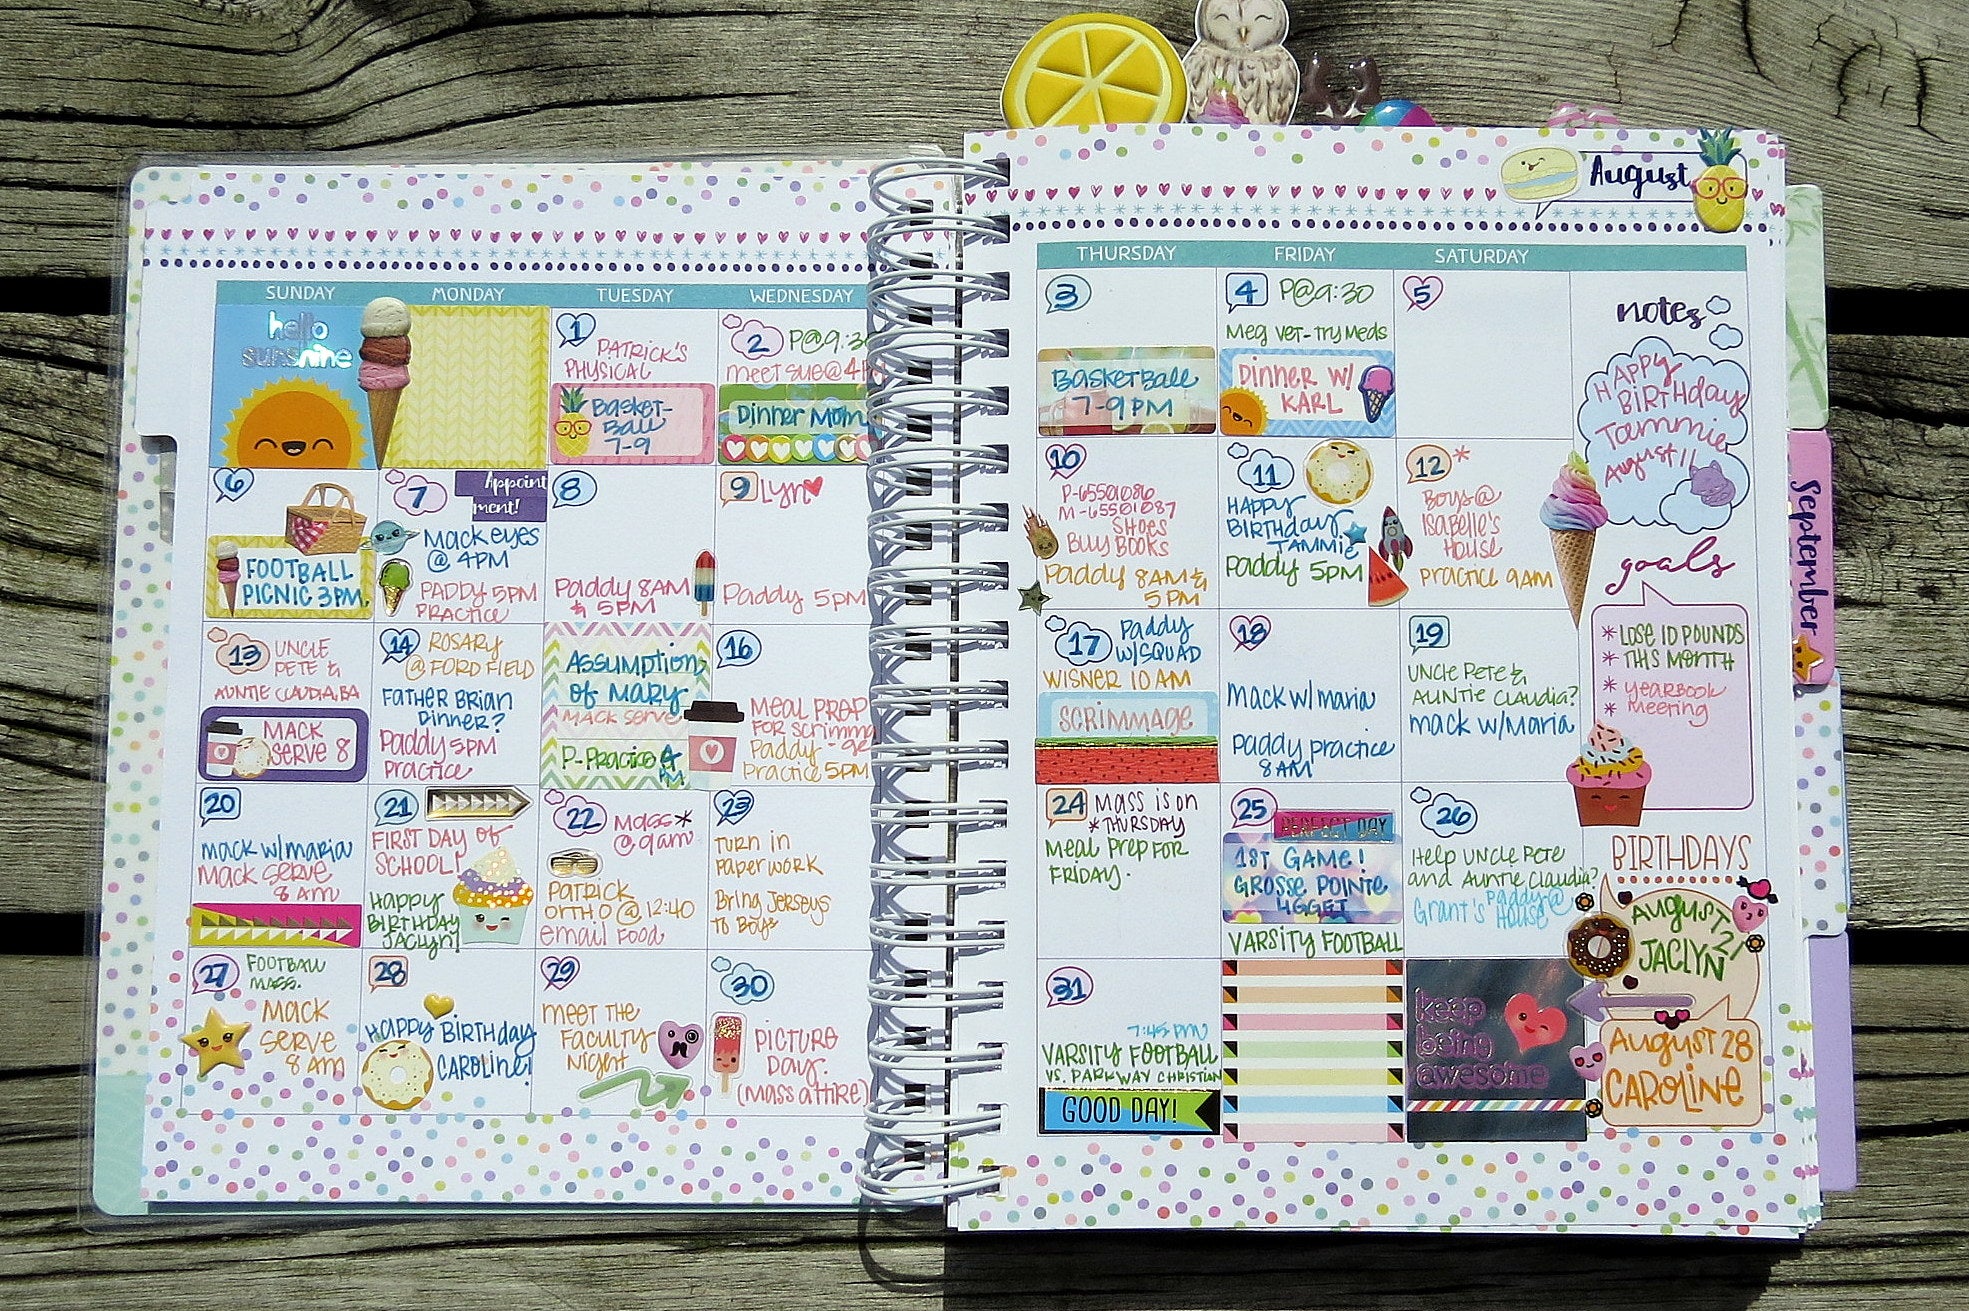 August
SUNDAY
MONDAY
TUESDAY
WEDNESDAY
THURSDAY
FRIDAY
SATURDAY
hello
sunshine
1
PATRICK'S
PHYSICAL
BASKET-
BALL
7-9
2 P@9:3
meet sue @ 4P
DINNER MOM
3
BASKETBALL
7-9 PM
4 P@9:30
MEG VET-TRY MEDS
DINNER W/
KARL
5
notes
HAPPY
BIRTHDAY
Tammie
AUGUST 11
6
FOOTBALL
PICNIC 3PM.
7 Appoint
ment!
MACK EYES
@ 4PM
PADDY 5PM
PRACTICE
8
Paddy 8AM
& 5PM
9 Lyn
Paddy 5PM
10
P-65501086
M-65501087
SHOES
BUY BOOKS
Paddy 8AM &
5PM
11
HAPPY
BIRTHDAY
TAMMIE
Paddy 5PM
12*
BOYS @
ISABELLE'S
HOUSE
PRACTICE 9AM
goals
* LOSE 10 POUNDS
* THIS MONTH
* YEARBOOK
* MEETING
September
13 UNCLE
PETE &
AUNTIE CLAUDIA.BA
MACK
SERVE 8
14 ROSARY
@ FORD FIELD
FATHER BRIAN
DINNER?
Paddy 5PM
PRACTICE
ASSUMPTION
OF MARY
MACK SERVE
P-PRACTICE 4
PM
16
MEAL PREP
FOR SCRIMM
Paddy
PRACTICE 5PM
17 Paddy
W/SQUAD
WISNER 10AM
SCRIMMAGE
18
MACK W/ MARIA
Paddy practice
8AM
19
UNCLE PETE &
AUNTIE CLAUDIA?
MACK W/MARIA
20
MACK W/MARIA
MACK SERVE
8 AM
21
FIRST DAY OF
SCHOOL!
HAPPY
BIRTHDAY
JACLYN!
22 MASS*
@ 9am
PATRICK
ORTHO @ 12:40
EMAIL FOOD
23
TURN IN
PAPERWORK
BRING JERSEYS
TO BOYS
24 MASS IS ON
* THURSDAY
MEAL PREP FOR
FRIDAY.
25
PERFECT DAY
1ST GAME!
GROSSE POINTE
VARSITY FOOTBALL
26
HELP UNCLE PETE
AND AUNTIE CLAUDIA?
Paddy @
GRANT'S HOUSE
BIRTHDAYS
AUGUST 21
JACLYN
27 FOOTBALL
MASS.
MACK
SERVE
8 AM
28
HAPPY BIRTHDAY
CAROLINE!
29
MEET THE
FACULTY
NIGHT
30
PICTURE
DAY.
(MASS ATTIRE)
31
7:45 PM
VARSITY FOOTBALL
VS. PARKWAY CHRISTIAN
GOOD DAY!
keep
being
awesome
AUGUST 28
CAROLINE